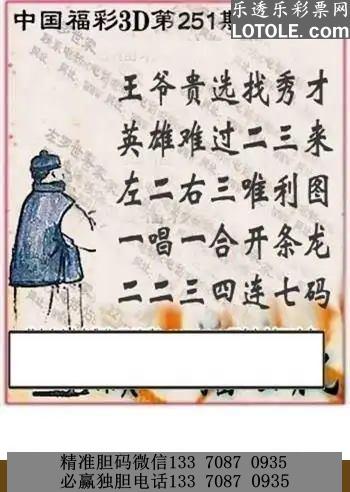 乐透乐彩票网
LOTOLE.COM
中国福彩3D第251期
王爷贵选找秀才
英雄难过二三来
左二右三唯利图
一唱一合开条龙
二二三四连七码
精准胆码微信133 7087 0935
必赢独胆电话133 7087 0935